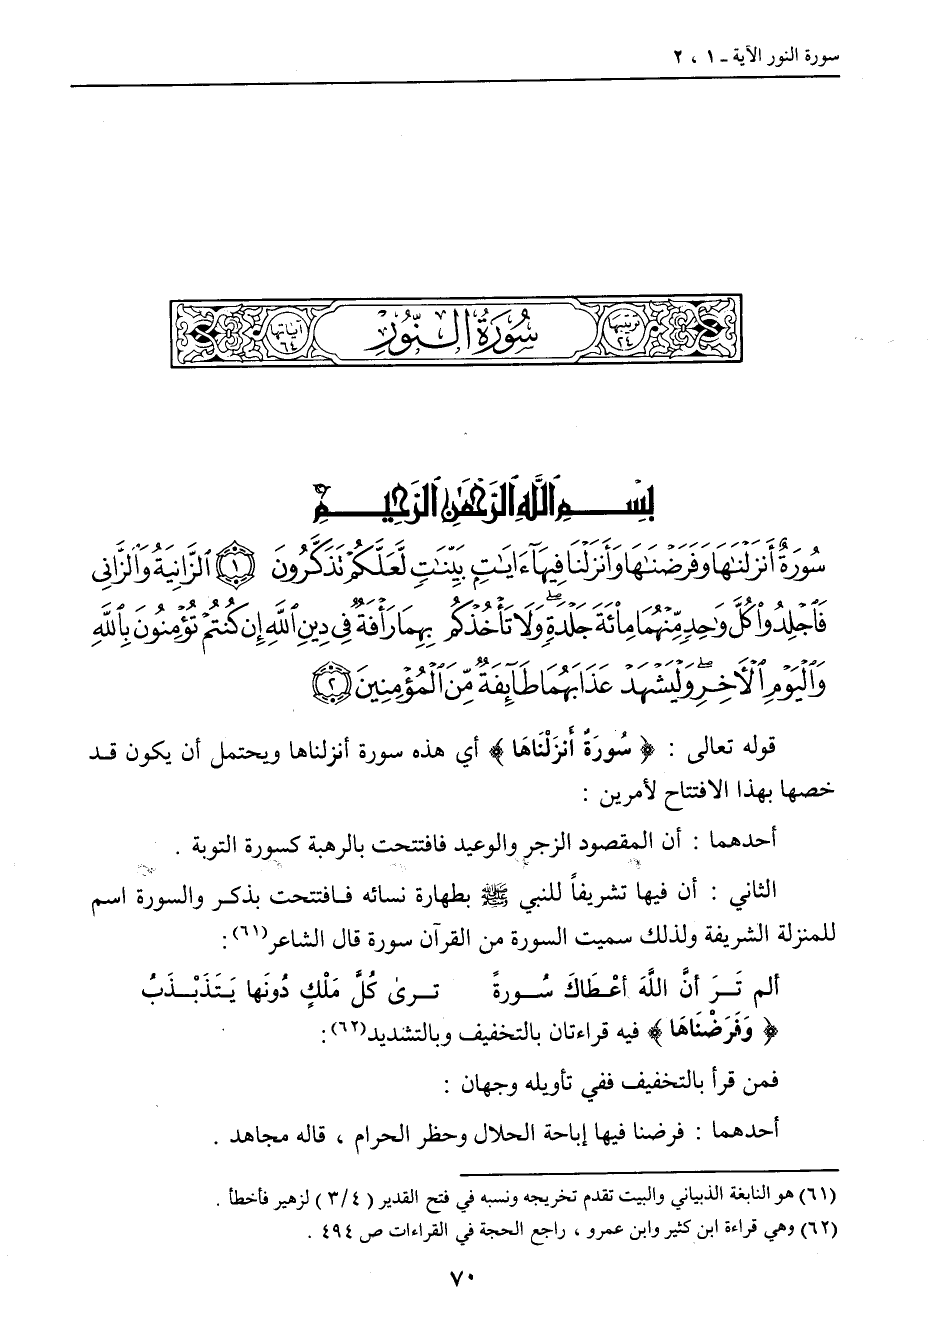 سورة النور الآية ـ ١ ، ٢
ترتيبها ٢٤
سُورَةُ النُّورِ
آياتها ٦٤
بِسْمِ ٱللَّهِ ٱلرَّحْمَٰنِ ٱلرَّحِيمِ
سُورَةٌ أَنزَلْنَٰهَا وَفَرَضْنَٰهَا وَأَنزَلْنَا فِيهَآ ءَايَٰتٍۭ بَيِّنَٰتٍ لَّعَلَّكُمْ تَذَكَّرُونَ ١ ٱلزَّانِيَةُ وَٱلزَّانِى
فَٱجْلِدُوا۟ كُلَّ وَٰحِدٍ مِّنْهُمَا مِا۟ئَةَ جَلْدَةٍۖ وَلَا تَأْخُذْكُم بِهِمَا رَأْفَةٌ فِى دِينِ ٱللَّهِ إِن كُنتُمْ تُؤْمِنُونَ بِٱللَّهِ
وَٱلْيَوْمِ ٱلْأَخِرِۖ وَلْيَشْهَدْ عَذَابَهُمَا طَآئِفَةٌ مِّنَ ٱلْمُؤْمِنِينَ ٢
قوله تعالى : ﴿ سُورَةٌ أَنزَلْنَاهَا ﴾ أي هذه سورة أنزلناها ويحتمل أن يكون قد
خصها بهذا الافتتاح لأمرين :
أحدهما : أن المقصود الزجر والوعيد فافتتحت بالرهبة كسورة التوبة .
الثاني : أن فيها تشريفاً للنبي ﷺ بطهارة نسائه فافتتحت بذكر والسورة اسم
للمنزلة الشريفة ولذلك سميت السورة من القرآن سورة قال الشاعر(٦١) :
ألم تَرَ أنَّ اللَّهَ أعْطَاكَ سُورةً ترىٰ كُلَّ مَلْكٍ دُونَها يَتَذَبْذَبُ
﴿ وَفَرَضْنَاهَا ﴾ فيه قراءتان بالتخفيف وبالتشديد(٦٢) :
فمن قرأ بالتخفيف ففي تأويله وجهان :
أحدهما : فرضنا فيها إباحة الحلال وحظر الحرام ، قاله مجاهد .
(٦١) هو النابغة الذبياني والبيت تقدم تخريجه ونسبه في فتح القدير ( ٣/٤ ) لزهير فأخطأ .
(٦٢) وهي قراءة ابن كثير وابن عمرو ، راجع الحجة في القراءات ص ٤٩٤ .
٧٠